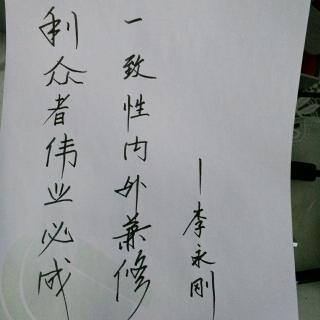 利众者伟业必成
一致性内外兼修
—李永刚